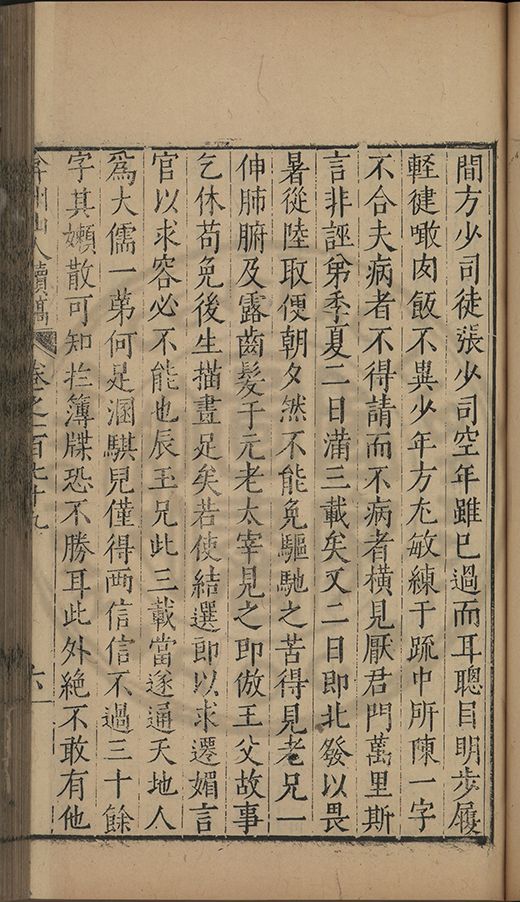 間方少司徒張少司空年雖已過而耳聰目明步履
軽健噉肉飯不異少年方尤敏練于䟽中所陳一字
不合夫病者不得請而不病者橫見厭君門萬里斯
言非誣弟季夏二日滿三載矣又二日即北發以畏
暑從陸取便朝夕然不能免驅馳之苦得見老兄一
伸肺腑及露齒髮于元老太宰見之即倣王父故事
乞休苟免後生描畫足矣若使結選即以求遷媚言
官以求容必不能也辰玉兄此三載當遂通天地人
為大儒一弟何足溷騏兒僅得两信信不過三十餘
字其嬾散可知扵簿牒恐不勝耳此外絶不敢有他
弇州山人續稿 卷之一百七十九 六